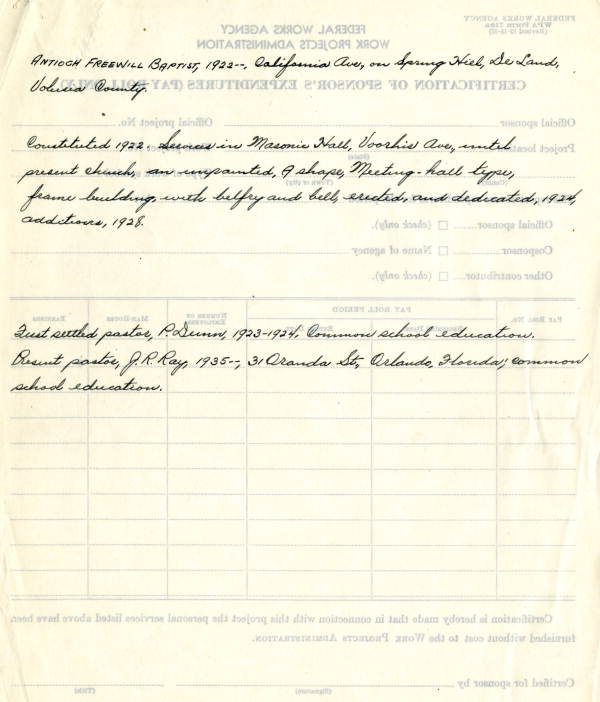 ANTIOCH FREEWILL BAPTIST, 1922--, California Ave, on Spring Hill, De Land,
Volusia County.
Constituted 1922. Services in Masonic Hall, Voorhis Ave, until
present church, an unpainted, A shape, Meeting-hall type,
frame building, with belfry and bell, erected, and dedicated, 1924,
additions, 1928.
First settled pastor, P. Dunn, 1923-1924, Common school education.
Present pastor, J. R. Ray, 1935--, 31 Aranda St., Orlando, Florida; common
school education.
FEDERAL WORKS AGENCY
WORK PROJECTS ADMINISTRATION
FEDERAL WORKS AGENCY
WPA Form
CERTIFICATION OF SPONSOR'S EXPENDITURES (PAY ROLL ONLY)
Official sponsor
Official project No.
Project location
(Town or city)
(County)
Official sponsor ☐ (check only).
Cosponsor ☐ Name of agency
Other contributor ☐ (check only).
PAY ROLL NO.
PAY ROLL PERIOD
NUMBER OF EMPLOYEES
MAN-HOURS
EARNINGS
Certification is hereby made that in connection with this project the personal services listed above have been
furnished without cost to the WORK PROJECTS ADMINISTRATION.
Certified for sponsor by
(Signature)
(Title)